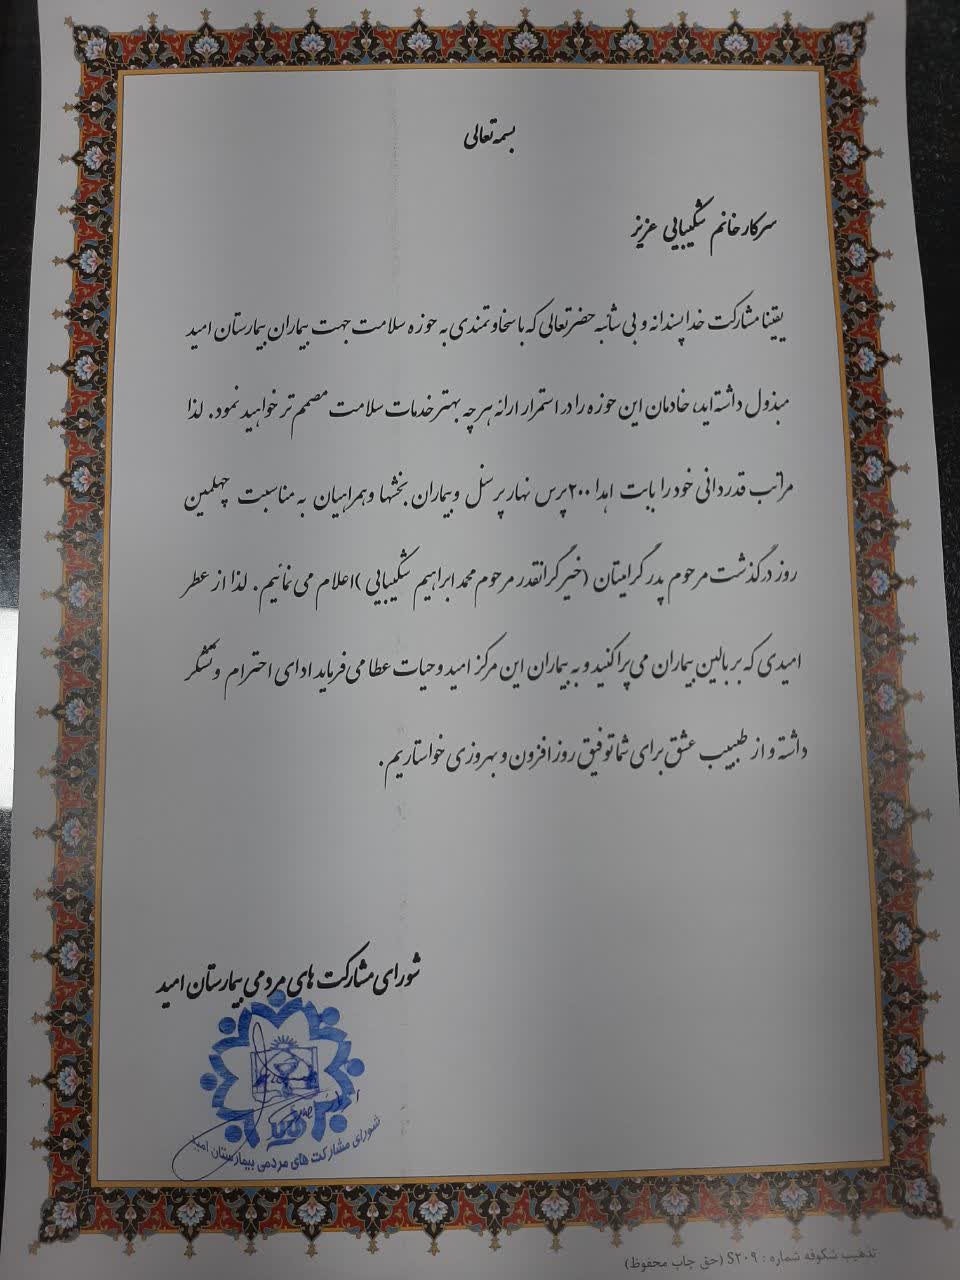 بسمه تعالی
سرکار خانم شکیبایی عزیز
یقینا مشارکت خداپسندانه و بی شائبه حضرتعالی که با سخاوتمندی به حوزه سلامت جهت بیماران بیمارستان امید
مبذول داشته اید، خادمان این حوزه را در استمرار ارائه هرچه بهتر خدمات سلامت مصمم تر خواهید نمود. لذا
مراتب قدردانی خود را بابت اهدا ۲۰۰پرس نهار پرسنل و بیماران بخشها و همراهیان به مناسبت چهلمین
روز درگذشت مرحوم پدر گرامیتان (خیر گرانقدر مرحوم محمد ابراهیم شکیبایی )اعلام می نمائیم. لذا از عطر
امیدی که بر بالین بیماران می پراکنید و به بیماران این مرکز امید و حیات عطا می فرماید ادای احترام و تشکر
داشته و از طبیب عشق برای شما توفیق روز افزون و بهروزی خواستاریم.
شورای مشارکت های مردمی بیمارستان امید
شورای مشارکت های مردمی بیمارستان امید
تذهیب شکوفه شماره : S۲۰۹ (حق چاپ محفوظ)